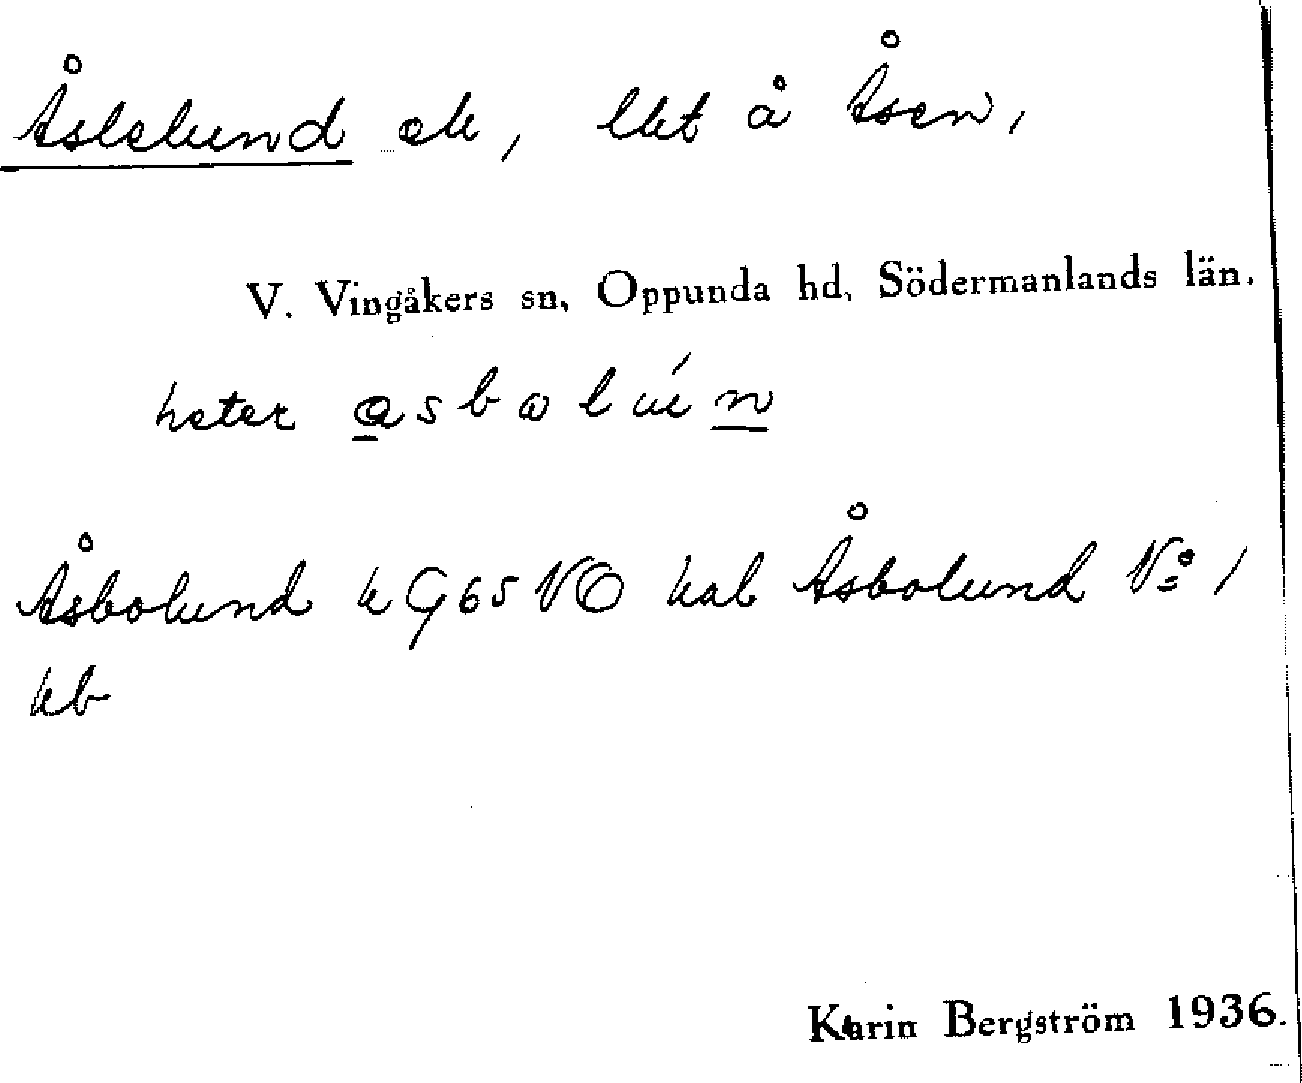 Åslelund ek, llet å Åsen,
V. Vingåkers sn, Oppunda hd, Södermanlands län.
heter
Åsbolund k G65 NO kal Åsbolund No 1
kb
Karin Bergström 1936.